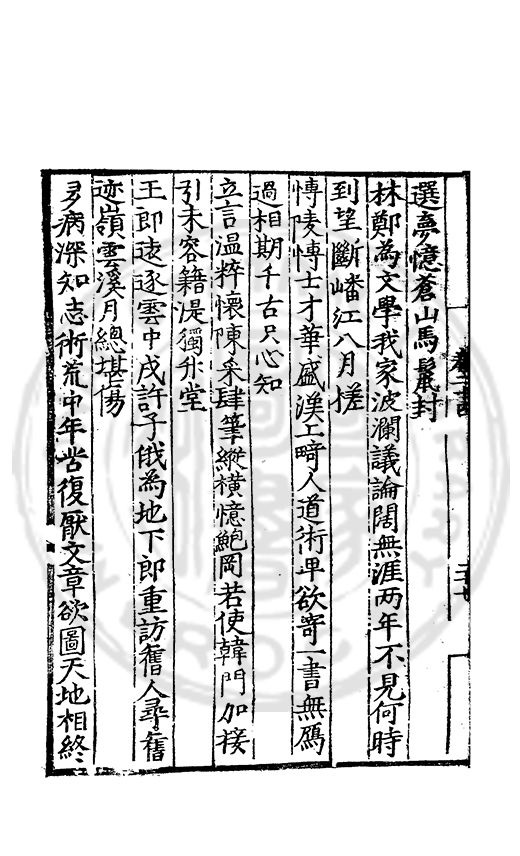 選夢憶蒼山馬鬛封
林鄭為文學我家波瀾議論闊無涯两年不見何時
到望斷嶓江八月槎
博陵博士才華盛漢上畸人道術卑欲寄一書無鴈
過相期千古只心知
立言温粹懷陳采肆筆縱横憶鮑岡若使韓門加接
引未容籍湜獨升堂
王郎逺逐雲中戍許子俄為地下郎重訪舊人尋舊
迹嶺雲溪月總堪傷
多病深知志術荒中年苦復厭文章欲圖天地相終